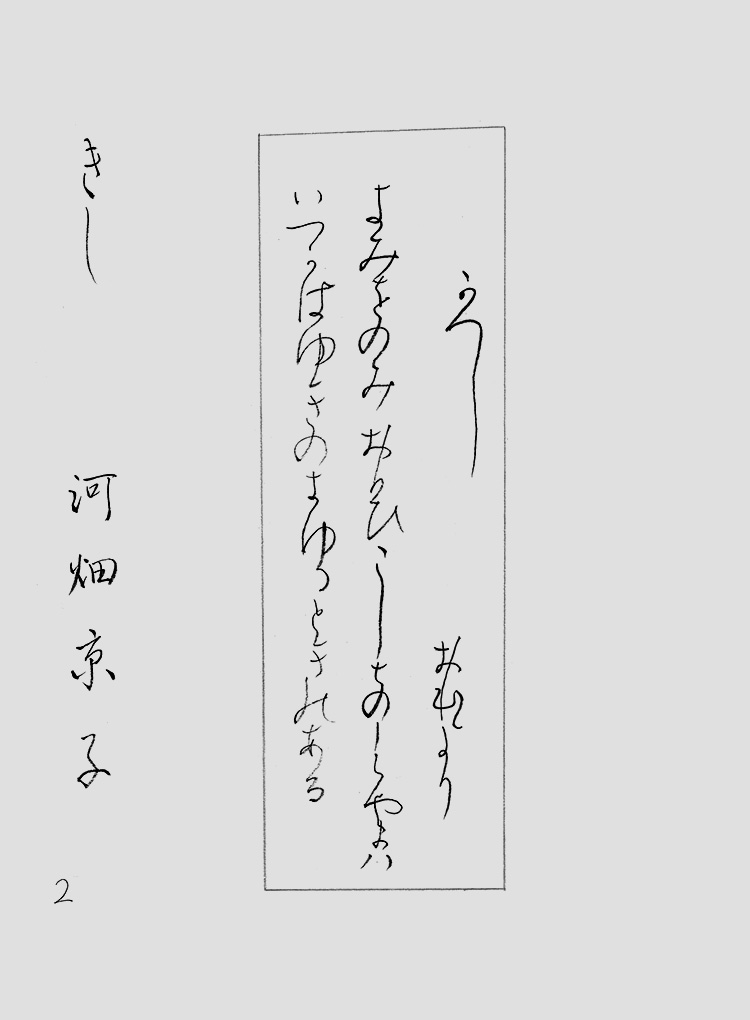 かへし　おほより
きみをのみおもひこしちのしらやまハ
いつかはゆきのきゆるときのある
きし　河畑京子
2